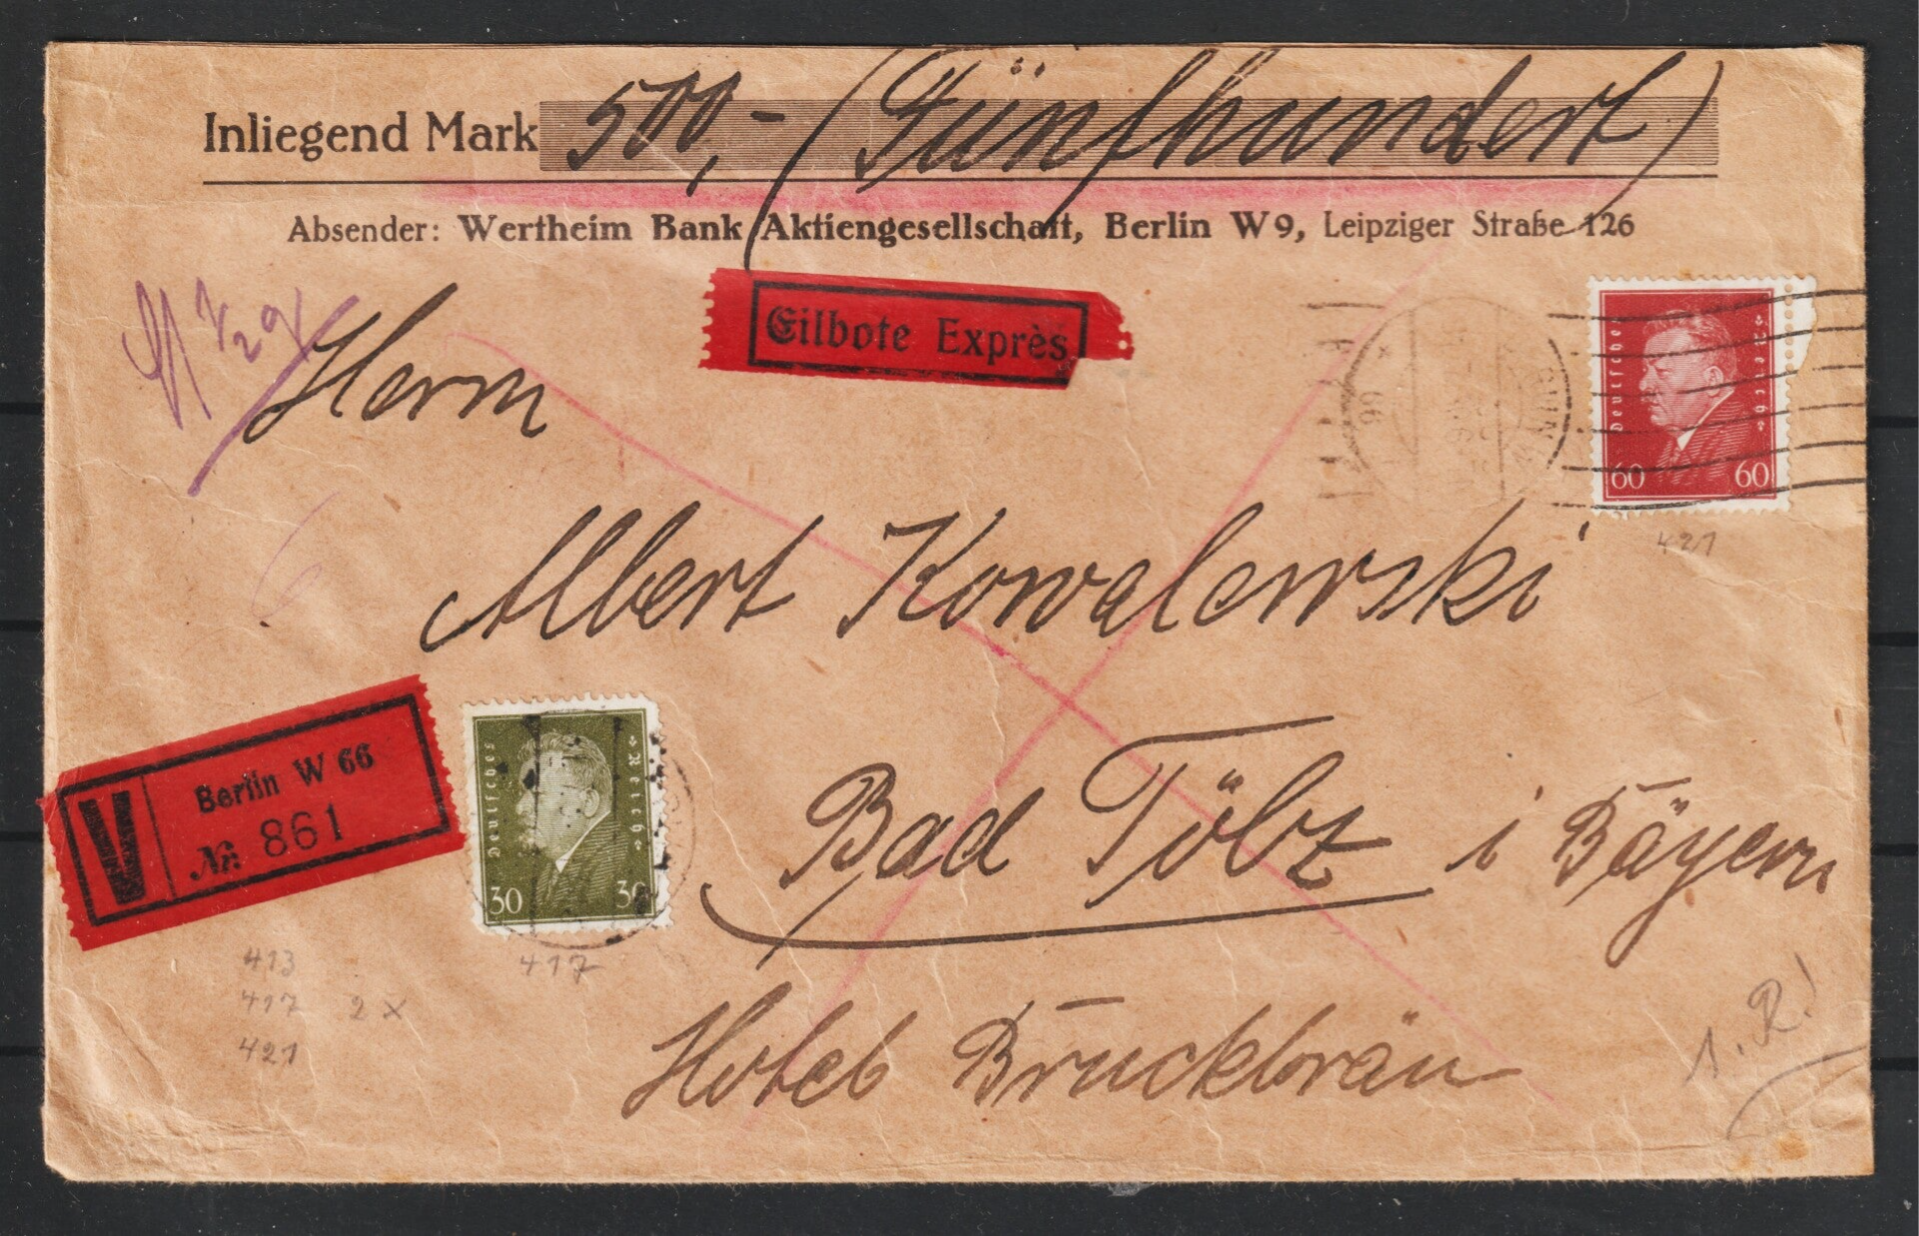 Inliegend Mark 500,- (Fünfhundert)
Absender: Wertheim Bank Aktiengesellschaft, Berlin W9, Leipziger Straße 126
Eilbote Exprès
Deutsches Reich
60 60
66
421
Herrn
Albert Kowalewski
V Berlin W 66
№ 861
Deutsches Reich
30 30
417
Bad Tölz i Bayern
Hotel Bruckbräu
413
417 2 x
421
1. R!